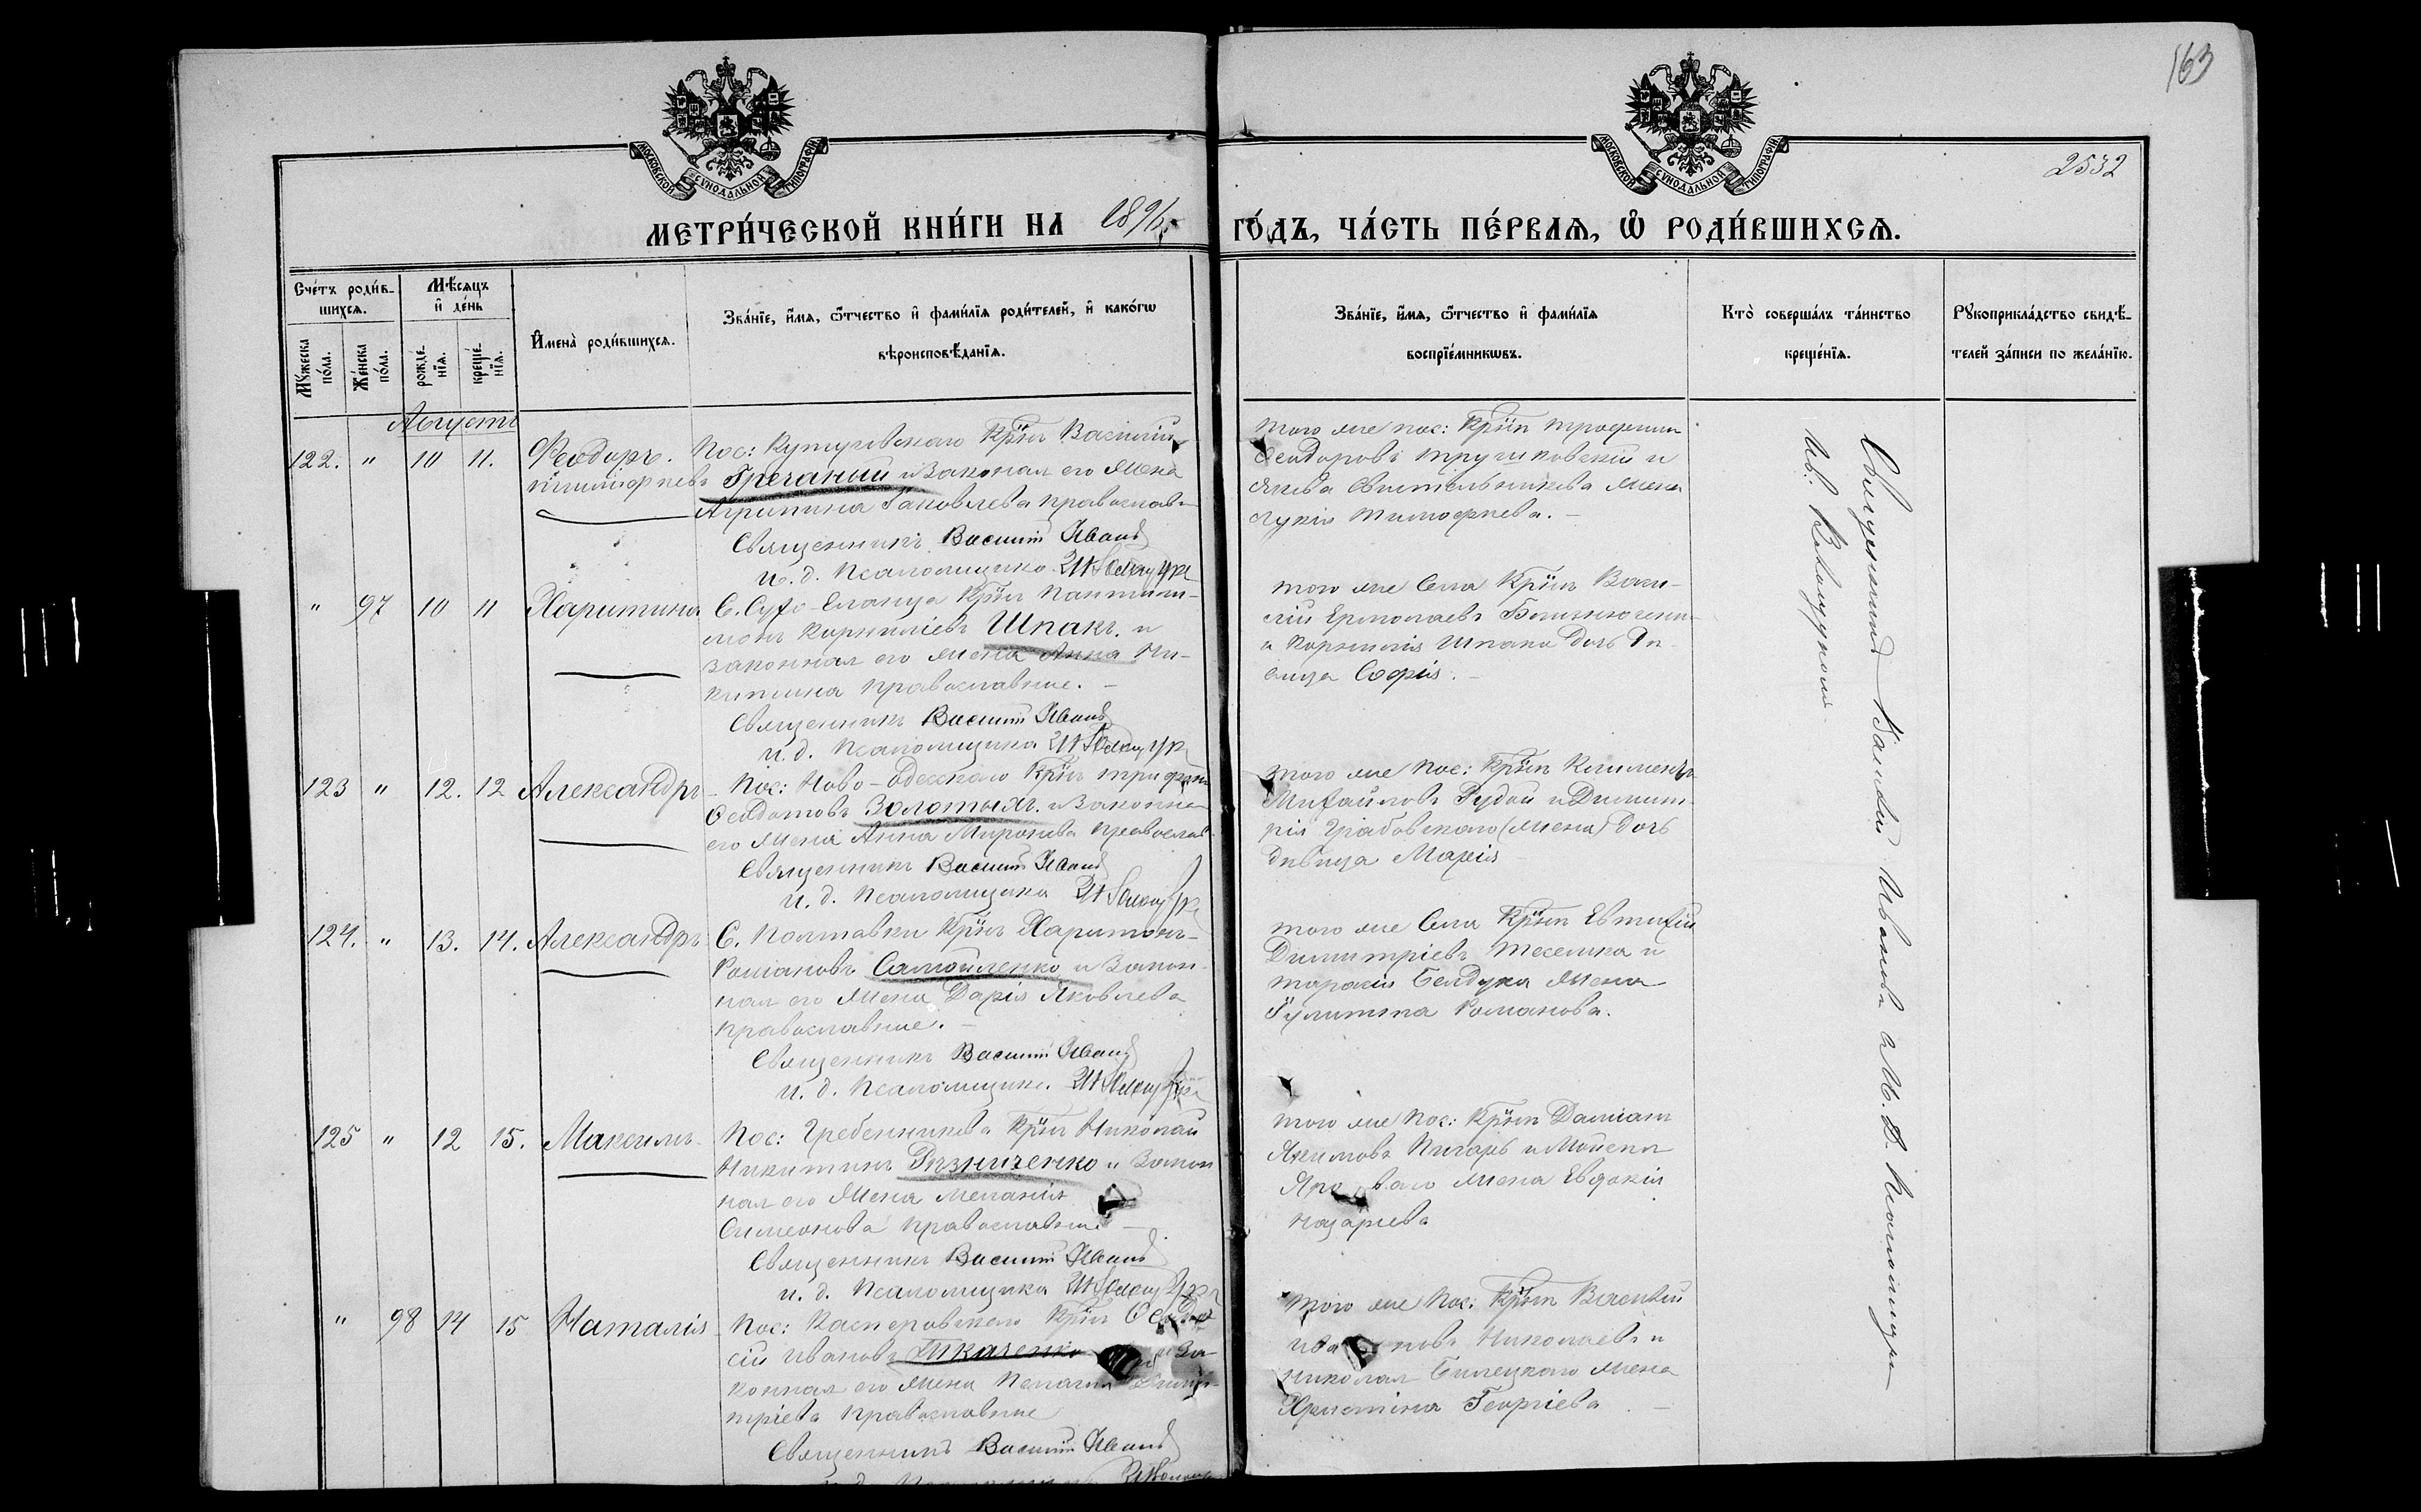 163
2532
МОСКОВСКОЙ СѴНОДАЛЬНОЙ ТИПОГРАФІИ.
МОСКОВСКОЙ СѴНОДАЛЬНОЙ ТИПОГРАФІИ.
МЕТРИ́ЧЕСКОЙ КНИ́ГИ НА 1896 ГО́ДЪ, ЧА́СТЬ ПЕ́РВАѦ, Ѽ РОДИ́ВШИХСѦ.
Сче́тъ роди́вшихсѧ.
Мꙋ́жеска по́ла.
Же́нска по́ла.
Мѣ́сѧцъ и҆ де́нь
рожде́нїѧ.
креще́нїѧ.
И҆мена̀ роди́вшихсѧ.
Зва́нїе, и҆́мѧ, ѻ҆́тчество и҆ фами́лїѧ роди́телей, и҆ како́гѡ
вѣроисповѣ́данїѧ.
Зва́нїе, и҆́мѧ, ѻ҆́тчество и҆ фами́лїѧ
воспрїе́мникѡвъ.
Кто̀ соверша́лъ та́инство
креще́нїѧ.
Рꙋкоприкла́дство свидѣ́телей за́писи по жела́нїю.
Августъ
122. " 10 11. Ѳеодоръ.
Пос: Кутузовскаго Крѣн Василій
Гречаный и Законная его Жена
Агрипина Іаковлева православ
Священникъ Василій Иванов
и. д. Псаломщика
того же пос: Крѣн Трофимъ
Ѳеодоровъ и
Жена
Лукія Тимофиева.
" 97 10 11 Харитина
С. Сухо-Еланца Крѣн Пантели-
монъ Корниліевъ Шпакъ и
законная его жена Анна Ни-
китина православные.
Священникъ Василій Иванов
и. д. Псаломщика
того же Села Крѣн Васи-
лій Ермолаевъ
и Корнилія Шпака дочь дѣ-
вица Софія.
123 " 12. 12 Александръ
Пос: Ново-одесскаго Крѣн Трифонъ
Ѳеодотовъ Золотыхъ и Законная
его жена Анна Миронова православ
Священникъ Василій Иванов
и. д. Псаломщика
того же пос: Крѣн Климентъ
Михайловъ Рудой и Димит-
рія Грабовскаго (жена) дочь
дѣвица Марія
124. " 13. 14. Александръ
С. Полтавки Крѣн Харитонъ
Романовъ Самойленко и Закон-
ная его Жена Дарія Яковлева
православные.
Священникъ Василій Иванов
и. д. Псаломщика
того же Села Крѣн Евтихій
Димитріевъ Теселика и
Тарасія Белдуна Жена
Іулитта Романова.
125 " 12 15. Максимъ
Пос: Гребенникова Крѣн Николай
Никитинъ Рѣзниченко и Закон
ная его Жена Меланія
Симеонова православные
Священникъ Василій Иванов
и. д. Псаломщика
того же пос: Крѣн Даміанъ
Якимовъ Пигарь и Моисея
жена Евдокія
Назариева
" 98 14 15 Наталія
Пос: Касперовскаго Крѣн
сій Ивановъ Ткаченко и За-
конная его Жена Пелагія Димит-
тріева православные
Священникъ Василій Иванов
того же пос: Крѣн Василій
Николаевъ и
Николая Билецкаго жена
Христина Георгіева
Священникъ Василій Ивановъ и И. Д. Псаломщика
Ив.